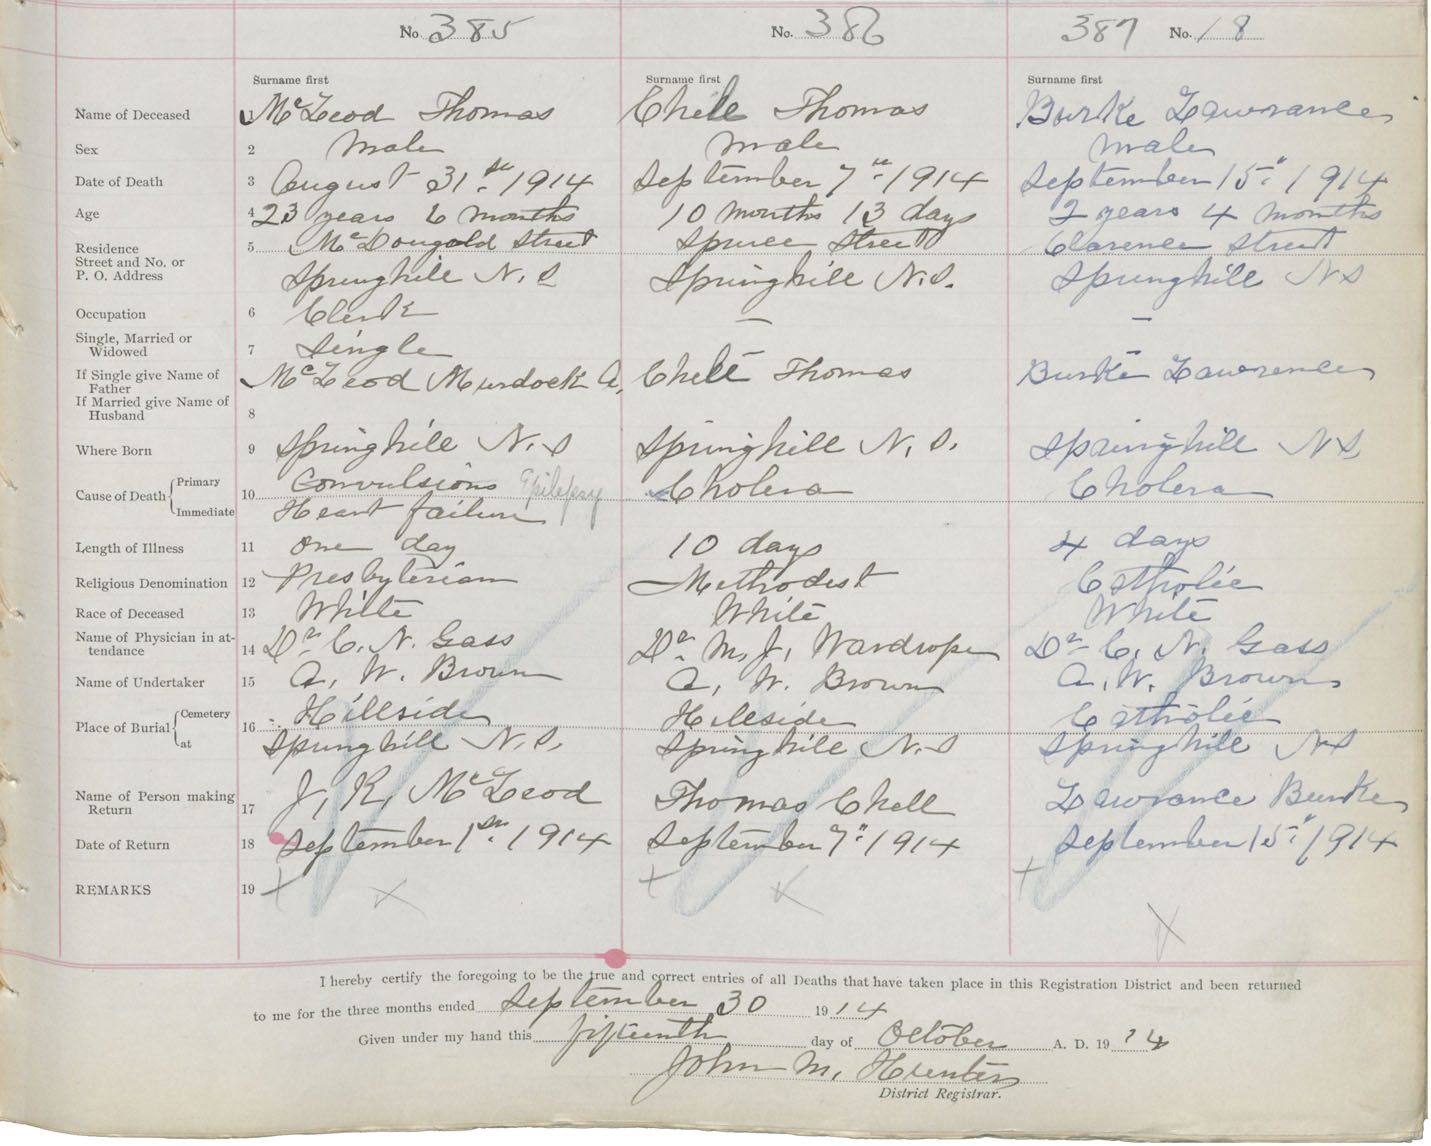 No. 385 No. 386 387 No. 18
Surname first Surname first Surname first
Name of Deceased 1 McLeod Thomas Chell Thomas Burke Lawrance
Sex 2 male male male
Date of Death 3 August 31st 1914 September 7th 1914 September 15" 1914
Age 4 23 years 6 months 10 months 13 days 2 years 4 months
Residence Street and No. or P. O. Address 5 McDougald Street Spruce Street Clarence Street
Springhill N.S Springhill N.S. Springhill NS
Occupation 6 Clerk — —
Single, Married or Widowed 7 Single — —
If Single give Name of Father McLeod Murdock A, Chell Thomas Burke Lawrence
If Married give Name of Husband 8
Where Born 9 Springhill N.S Springhill N.S. Springhill NS
Cause of Death Primary 10 Convulsions Epilepsy Cholera Cholera
Immediate Heart failure
Length of Illness 11 one day 10 days 4 days
Religious Denomination 12 Presbyterian Methodist Catholic
Race of Deceased 13 White White White
Name of Physician in attendance 14 Dr. C. N. Gass Dr. M. J. Wardrope Dr. C. N. Gass
Name of Undertaker 15 A. W. Brown A. W. Brown A. W. Brown
Place of Burial Cemetery 16 Hillside Hillside Catholic
at Springhill N.S. Springhill N.S Springhill NS
Name of Person making Return 17 J. R. McLeod Thomas Chell Lawrance Burke
Date of Return 18 September 1st 1914 September 7" 1914 September 15" 1914
REMARKS 19 + x + x + x
I hereby certify the foregoing to be the true and correct entries of all Deaths that have taken place in this Registration District and been returned
to me for the three months ended September 30 1914
Given under my hand this fifteenth day of October A. D. 1914
John M. Hunter
District Registrar.